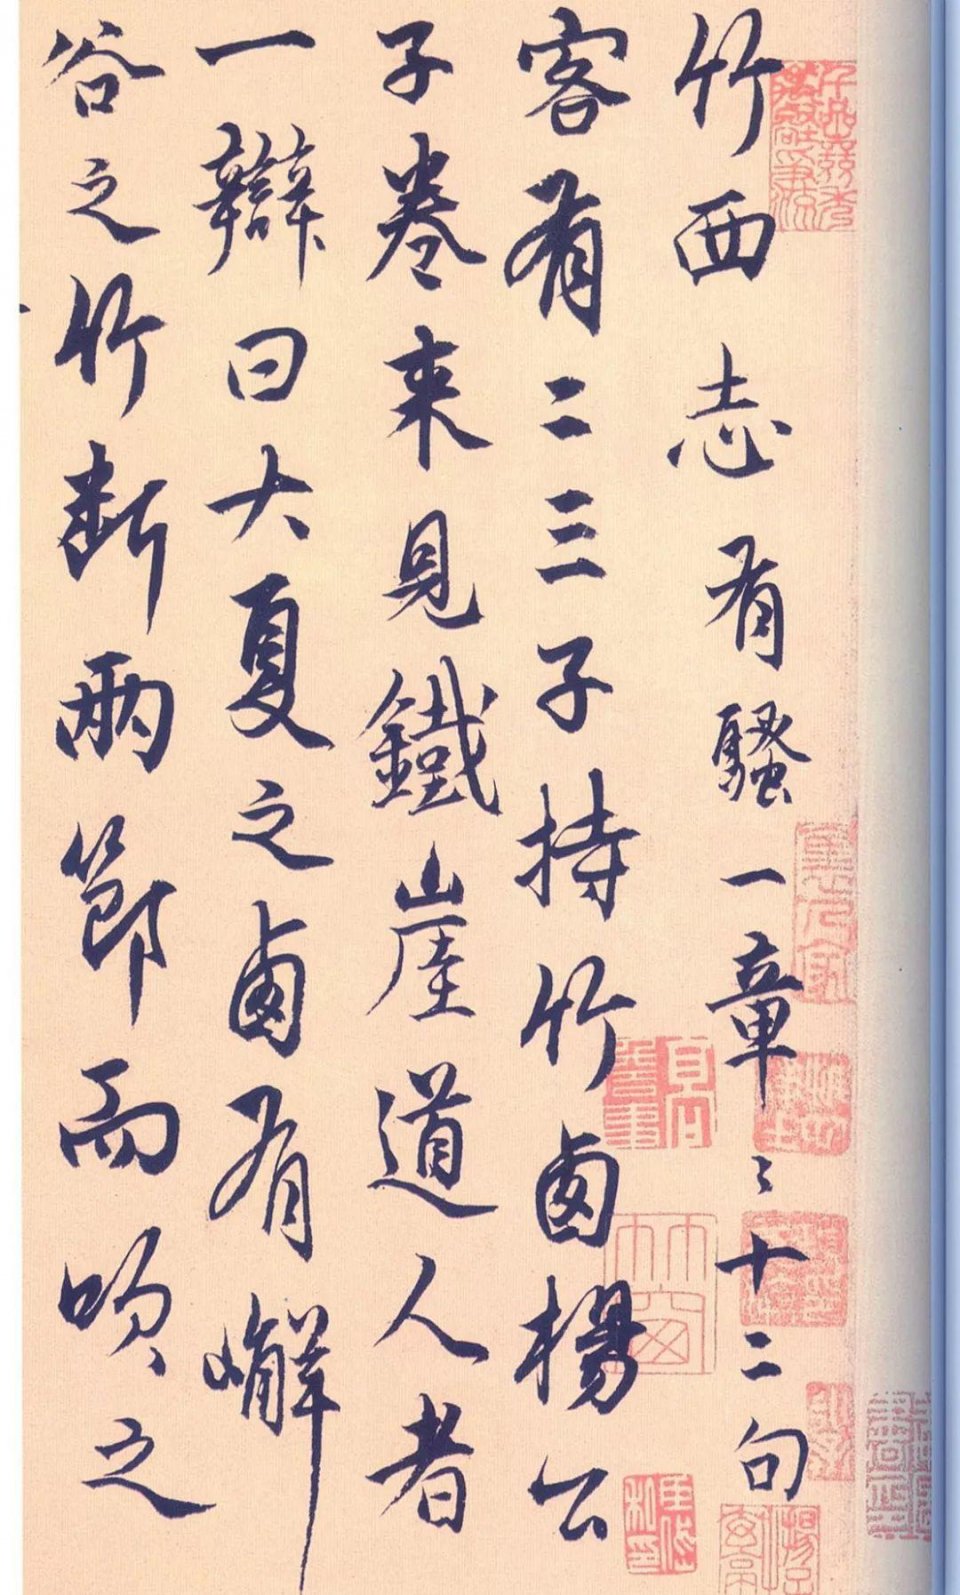 竹西志有騷一章〻十二句
客有二三子持竹卥楊公
子卷来見鐵崖道人者
一辯曰大夏之卥有嶰
谷之竹断兩節而吹之